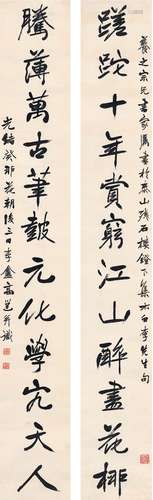 養之宗兄書家屬書於泰山殘石樓鐙下集太白李先生句
蹉跎十年賞窮江山醉盡花柳
騰薄萬古筆鼓元化學究天人
光緒癸卯花朝後三日李盦高邕并識